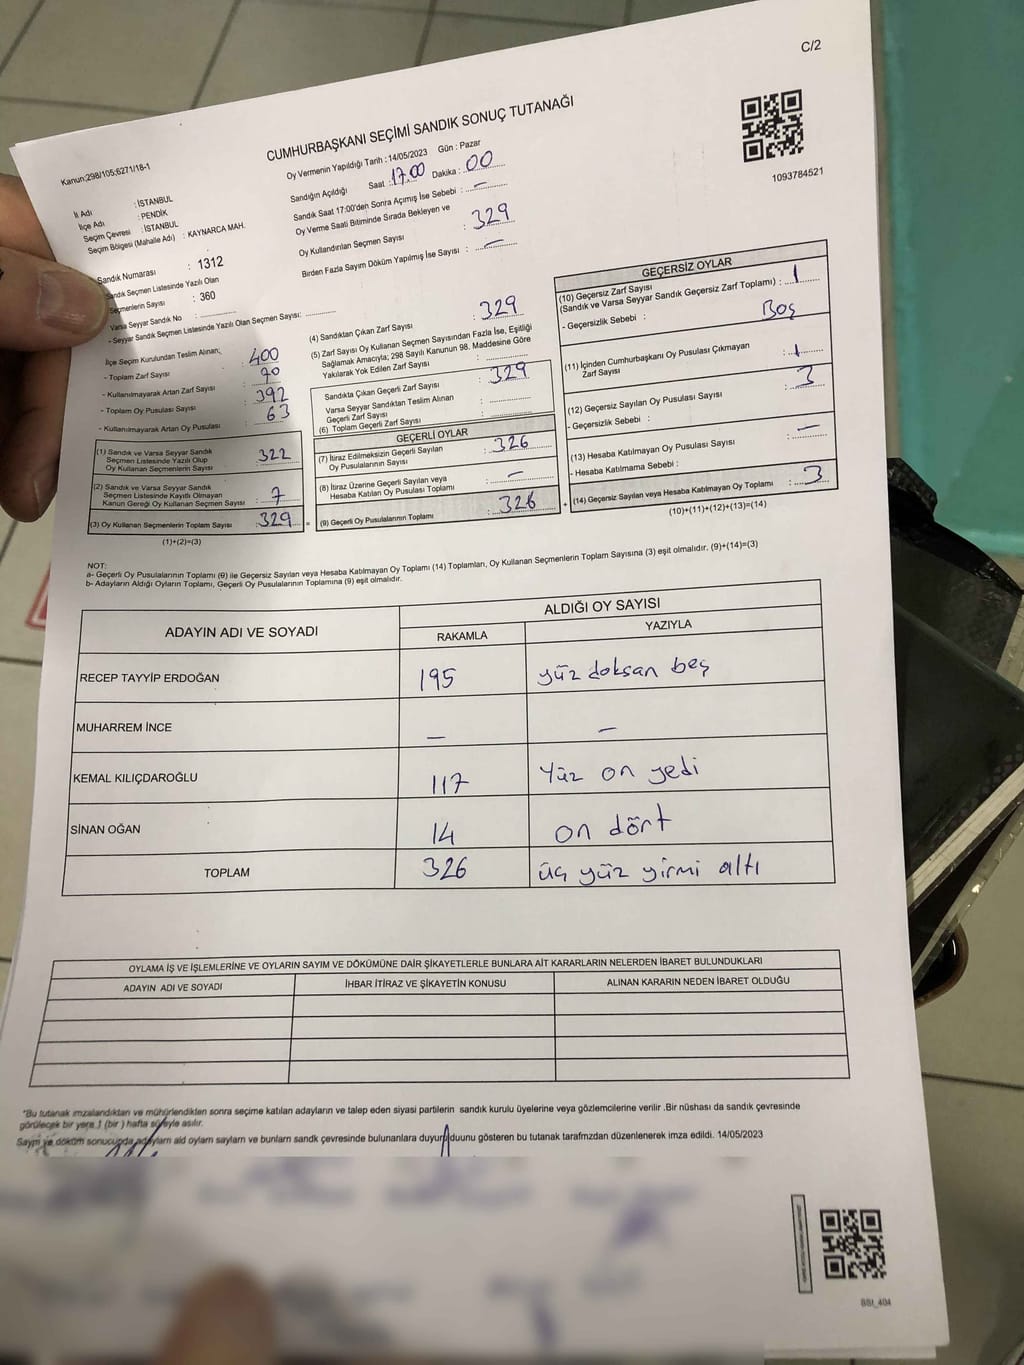 C/2
Kanun:298/105;6271/18-1
CUMHURBAŞKANI SEÇİMİ SANDIK SONUÇ TUTANAĞI
1093784521
İl Adı : İSTANBUL
İlçe Adı : PENDİK
Seçim Çevresi : İSTANBUL
Seçim Bölgesi (Mahalle Adı) : KAYNARCA MAH.
Oy Vermenin Yapıldığı Tarih : 14/05/2023 Gün : Pazar
Sandığın Açıldığı Saat : 17.00 Dakika : 00
Sandık Saat 17:00'den Sonra Açımış İse Sebebi : —
Oy Verme Saati Bitiminde Sırada Bekleyen ve
Oy Kullandırılan Seçmen Sayısı : 329
Birden Fazla Sayım Döküm Yapılmış İse Sayısı : —
Sandık Numarası : 1312
Sandık Seçmen Listesinde Yazılı Olan
Seçmenlerin Sayısı : 360
Varsa Seyyar Sandık No :
- Seyyar Sandık Seçmen Listesinde Yazılı Olan Seçmen Sayısı:
İlçe Seçim Kurulundan Teslim Alınan;
- Toplam Zarf Sayısı : 400
- Kullanılmayarak Artan Zarf Sayısı
- Toplam Oy Pusulası Sayısı : 392
- Kullanılmayarak Artan Oy Pusulası : 63
(1) Sandık ve Varsa Seyyar Sandık
Seçmen Listesinde Yazılı Olup
Oy Kullanan Seçmenlerin Sayısı : 322
(2) Sandık ve Varsa Seyyar Sandık
Seçmen Listesinde Kayıtlı Olmayan
Kanun Gereği Oy Kullanan Seçmen Sayısı : 7
(3) Oy Kullanan Seçmenlerin Toplam Sayısı : 329 =
(1)+(2)=(3)
(4) Sandıktan Çıkan Zarf Sayısı : 329
(5) Zarf Sayısı Oy Kullanan Seçmen Sayısından Fazla İse, Eşitliği
Sağlamak Amacıyla; 298 Sayılı Kanunun 98. Maddesine Göre
Yakılarak Yok Edilen Zarf Sayısı :
Sandıkta Çıkan Geçerli Zarf Sayısı : 329
Varsa Seyyar Sandıktan Teslim Alınan
Geçerli Zarf Sayısı :
(6) Toplam Geçerli Zarf Sayısı :
GEÇERLİ OYLAR
(7) İtiraz Edilmeksizin Geçerli Sayılan
Oy Pusulalarının Sayısı : 326
(8) İtiraz Üzerine Geçerli Sayılan veya
Hesaba Katılan Oy Pusulası Toplamı : —
(9) Geçerli Oy Pusulalarının Toplamı : 326 +
GEÇERSİZ OYLAR
(10) Geçersiz Zarf Sayısı
(Sandık ve Varsa Seyyar Sandık Geçersiz Zarf Toplamı) : 1
- Geçersizlik Sebebi : Boş
(11) İçinden Cumhurbaşkanı Oy Pusulası Çıkmayan
Zarf Sayısı : 1
(12) Geçersiz Sayılan Oy Pusulası Sayısı : 3
- Geçersizlik Sebebi :
(13) Hesaba Katılmayan Oy Pusulası Sayısı : —
- Hesaba Katılmama Sebebi :
(14) Geçersiz Sayılan veya Hesaba Katılmayan Oy Toplamı : 3
(10)+(11)+(12)+(13)=(14)
NOT:
a- Geçerli Oy Pusulalarının Toplamı (9) ile Geçersiz Sayılan veya Hesaba Katılmayan Oy Toplamı (14) Toplamları, Oy Kullanan Seçmenlerin Toplam Sayısına (3) eşit olmalıdır. (9)+(14)=(3)
b- Adayların Aldığı Oyların Toplamı, Geçerli Oy Pusulalarının Toplamına (9) eşit olmalıdır.
ADAYIN ADI VE SOYADI ALDIĞI OY SAYISI
RAKAMLA YAZIYLA
RECEP TAYYİP ERDOĞAN 195 yüz doksan beş
MUHARREM İNCE — —
KEMAL KILIÇDAROĞLU 117 Yüz on yedi
SİNAN OĞAN 14 on dört
TOPLAM 326 üç yüz yirmi altı
OYLAMA İŞ VE İŞLEMLERİNE VE OYLARIN SAYIM VE DÖKÜMÜNE DAİR ŞİKAYETLERLE BUNLARA AİT KARARLARIN NELERDEN İBARET BULUNDUKLARI
ADAYIN ADI VE SOYADI İHBAR İTİRAZ VE ŞİKAYETİN KONUSU ALINAN KARARIN NEDEN İBARET OLDUĞU
"Bu tutanak imzalandıktan ve mühürlendikten sonra seçime katılan adayların ve talep eden siyasi partilerin sandık kurulu üyelerine veya gözlemcilerine verilir .Bir nüshası da sandık çevresinde
görülecek bir yere 1 (bir ) hafta süreyle asılır.
Sayım ve döküm sonucunda adayların ald oyların sayların ve bunların sandk çevresinde bulunanlara duyurulduunu gösteren bu tutanak tarafmzdan düzenlenerek imza edildi. 14/05/2023
BSI_404